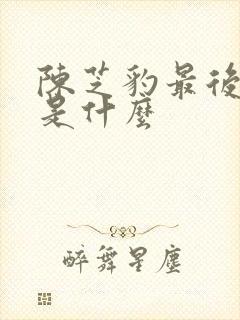 陳芝豹最後
是什麼
醉舞星塵